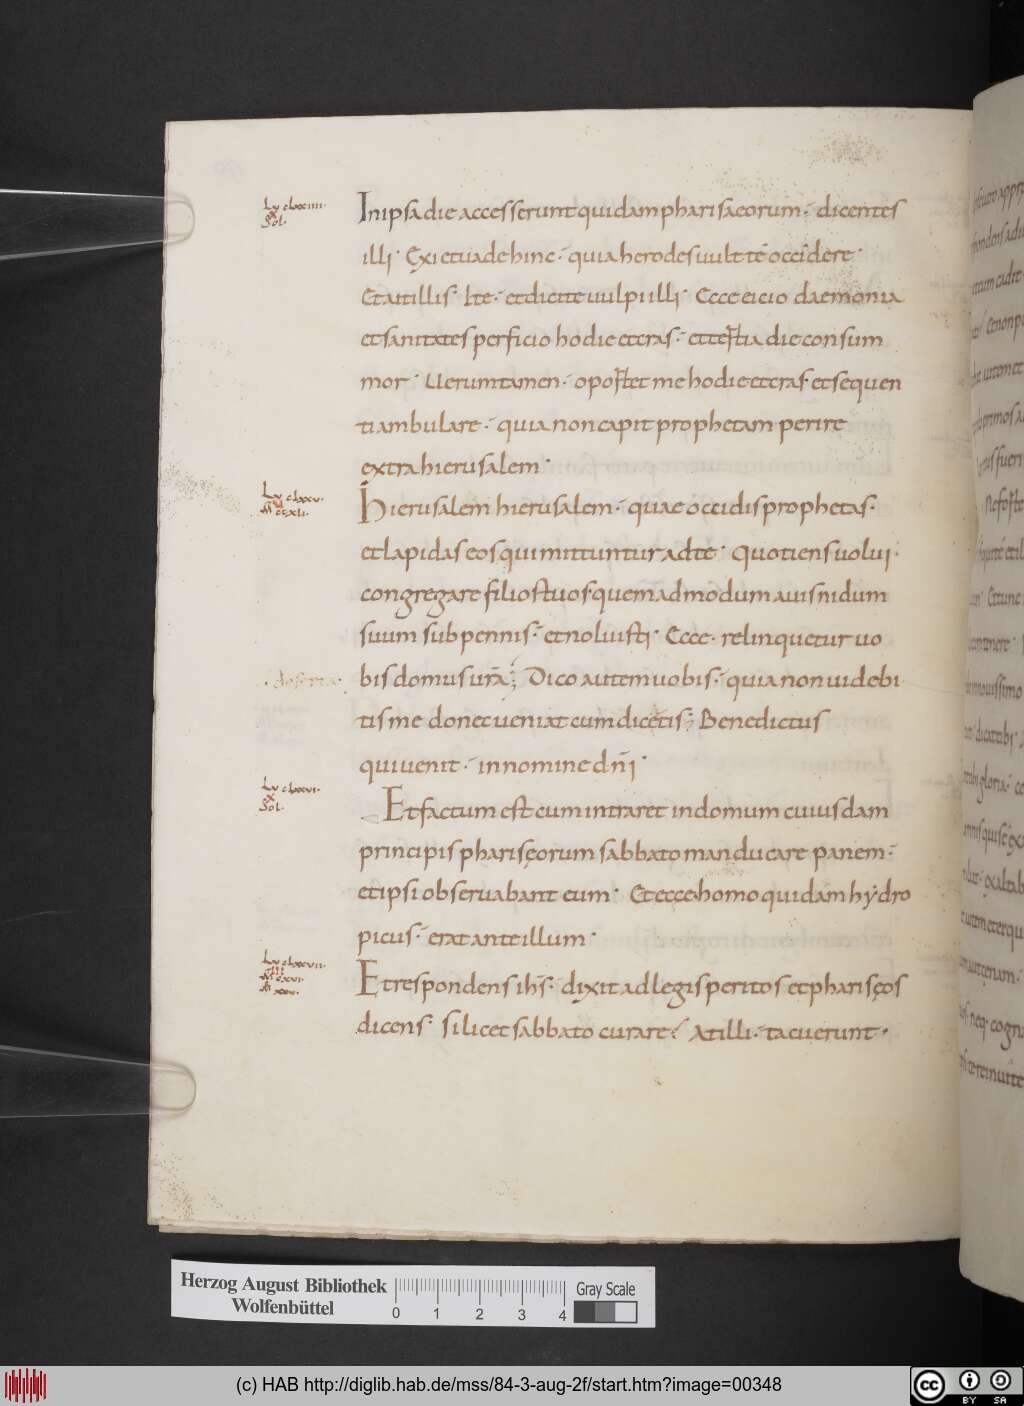 Lu clxxiiii.
X
Sol.
In ipsa die accesserunt quidam pharisaeorum · dicentes
illi · Exi et uade hinc · quia herodes uult te occidere ·
Et ait illis · Ite · et dicite uulpi illi · Ecce eicio daemonia
et sanitates perficio hodie et cras · et tertia die consum
mor · Uerumtamen · oportet me hodie et cras et sequen
ti ambulare · quia non capit prophetam perire
extra hierusalem ·
Lu clxxv.
M ccxli.
Hierusalem hierusalem · quae occidis prophetas ·
et lapidas eos qui mittuntur ad te · Quotiens uolui ·
congregare filios tuos quemadmodum auis nidum
suum sub pennis · et noluisti · Ecce · relinquetur uo
bis domus urā ; Dico autem uobis · quia non uidebi
tis me donec ueniat cum dicetis ; Benedictus
qui uenit · in nomine dn̄i ·
Lu clxxvi.
X
Sol.
Et factum est cum intraret in domum cuiusdam
principis pharisęorum sabbato manducare panem ·
et ipsi obseruabant eum · Et ecce homo quidam hydro
picus · erat ante illum ·
Lu clxxvii.
Et respondens ih̄s · dixit ad legis peritos et pharisęos
dicens · si licet sabbato curare ? At illi · tacuerunt ·
Herzog August Bibliothek
Wolfenbüttel
0 1 2 3 4
Gray Scale
(c) HAB http://diglib.hab.de/mss/84-3-aug-2f/start.htm?image=00348
cc BY SA